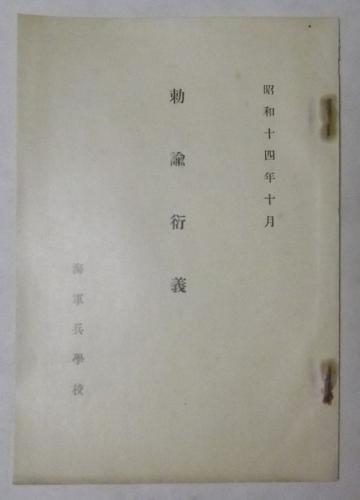 昭和十四年十月
勅諭衍義
海軍兵學校